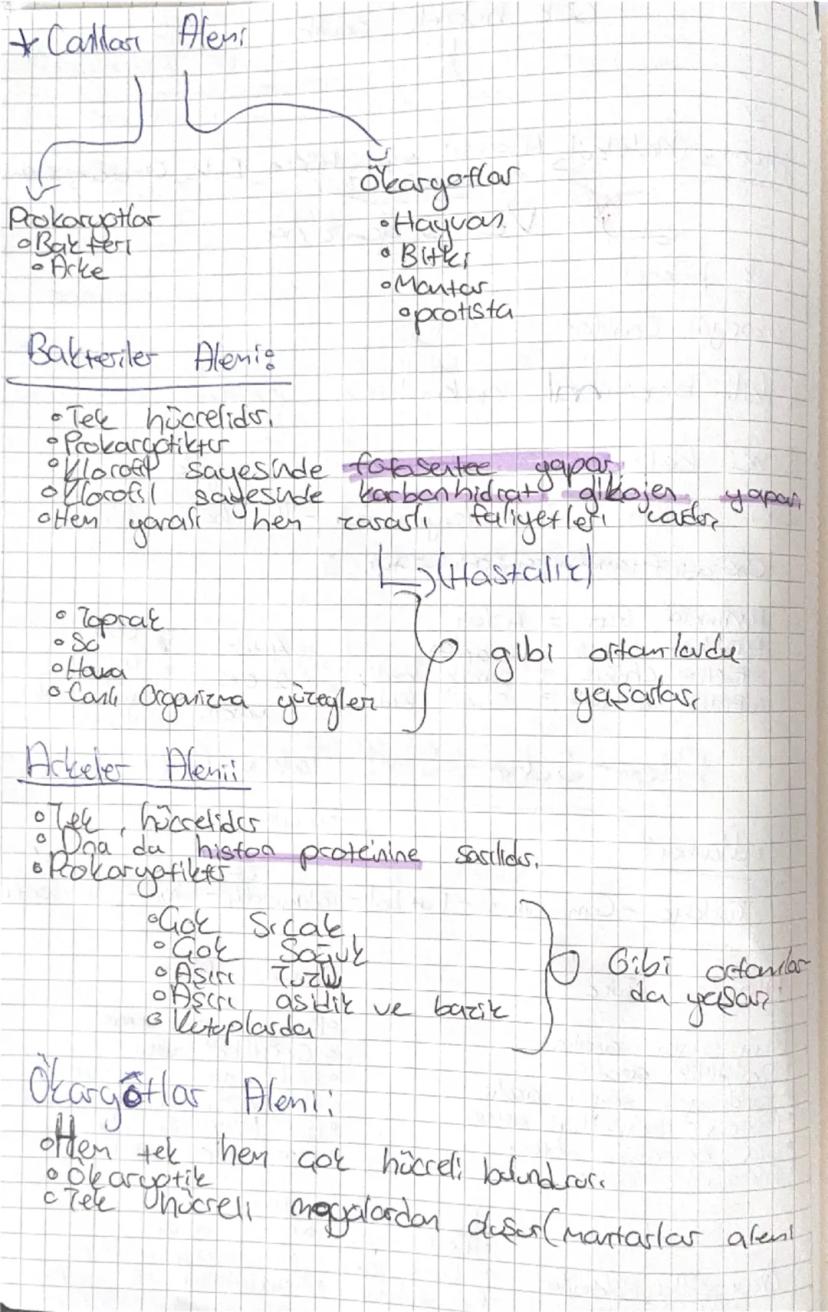 * Canlılar Alemi
Prokaryotlar
• Bakteri
• Arke
Ökaryotlar
• Hayvan
• Bitki
• Mantar
• protista
Bakteriler Alemi:
• Tek hücrelidir.
• Prokaryotiktir
• Klorofil sayesinde fotosentez yapar
• Klorofil sayesinde karbonhidrat glikojen yapar
• Hem yararlı hem zararlı faliyetleri vardır
(Hastalık)
• Toprak
• Su
• Hava
• Canlı Organizma yüzeyler
gibi ortamlarda
yaşarlar,
Arkeler Alemi:
• Tek hücrelidir
• Dna da histon proteinine sarılıdır.
• Prokaryotiktir
• Çok Sıcak
• Çok Soğuk
• Aşırı Tuzlu
• Aşırı asidik ve bazik
• Kutuplarda
Gibi ortamlar
da yaşar
Ökaryôtlar Alemi:
• Hem tek hem çok hücreli bulundurur.
• Ökaryotik
• Tek hücreli mayalardan oluşur (mantarlar alemi